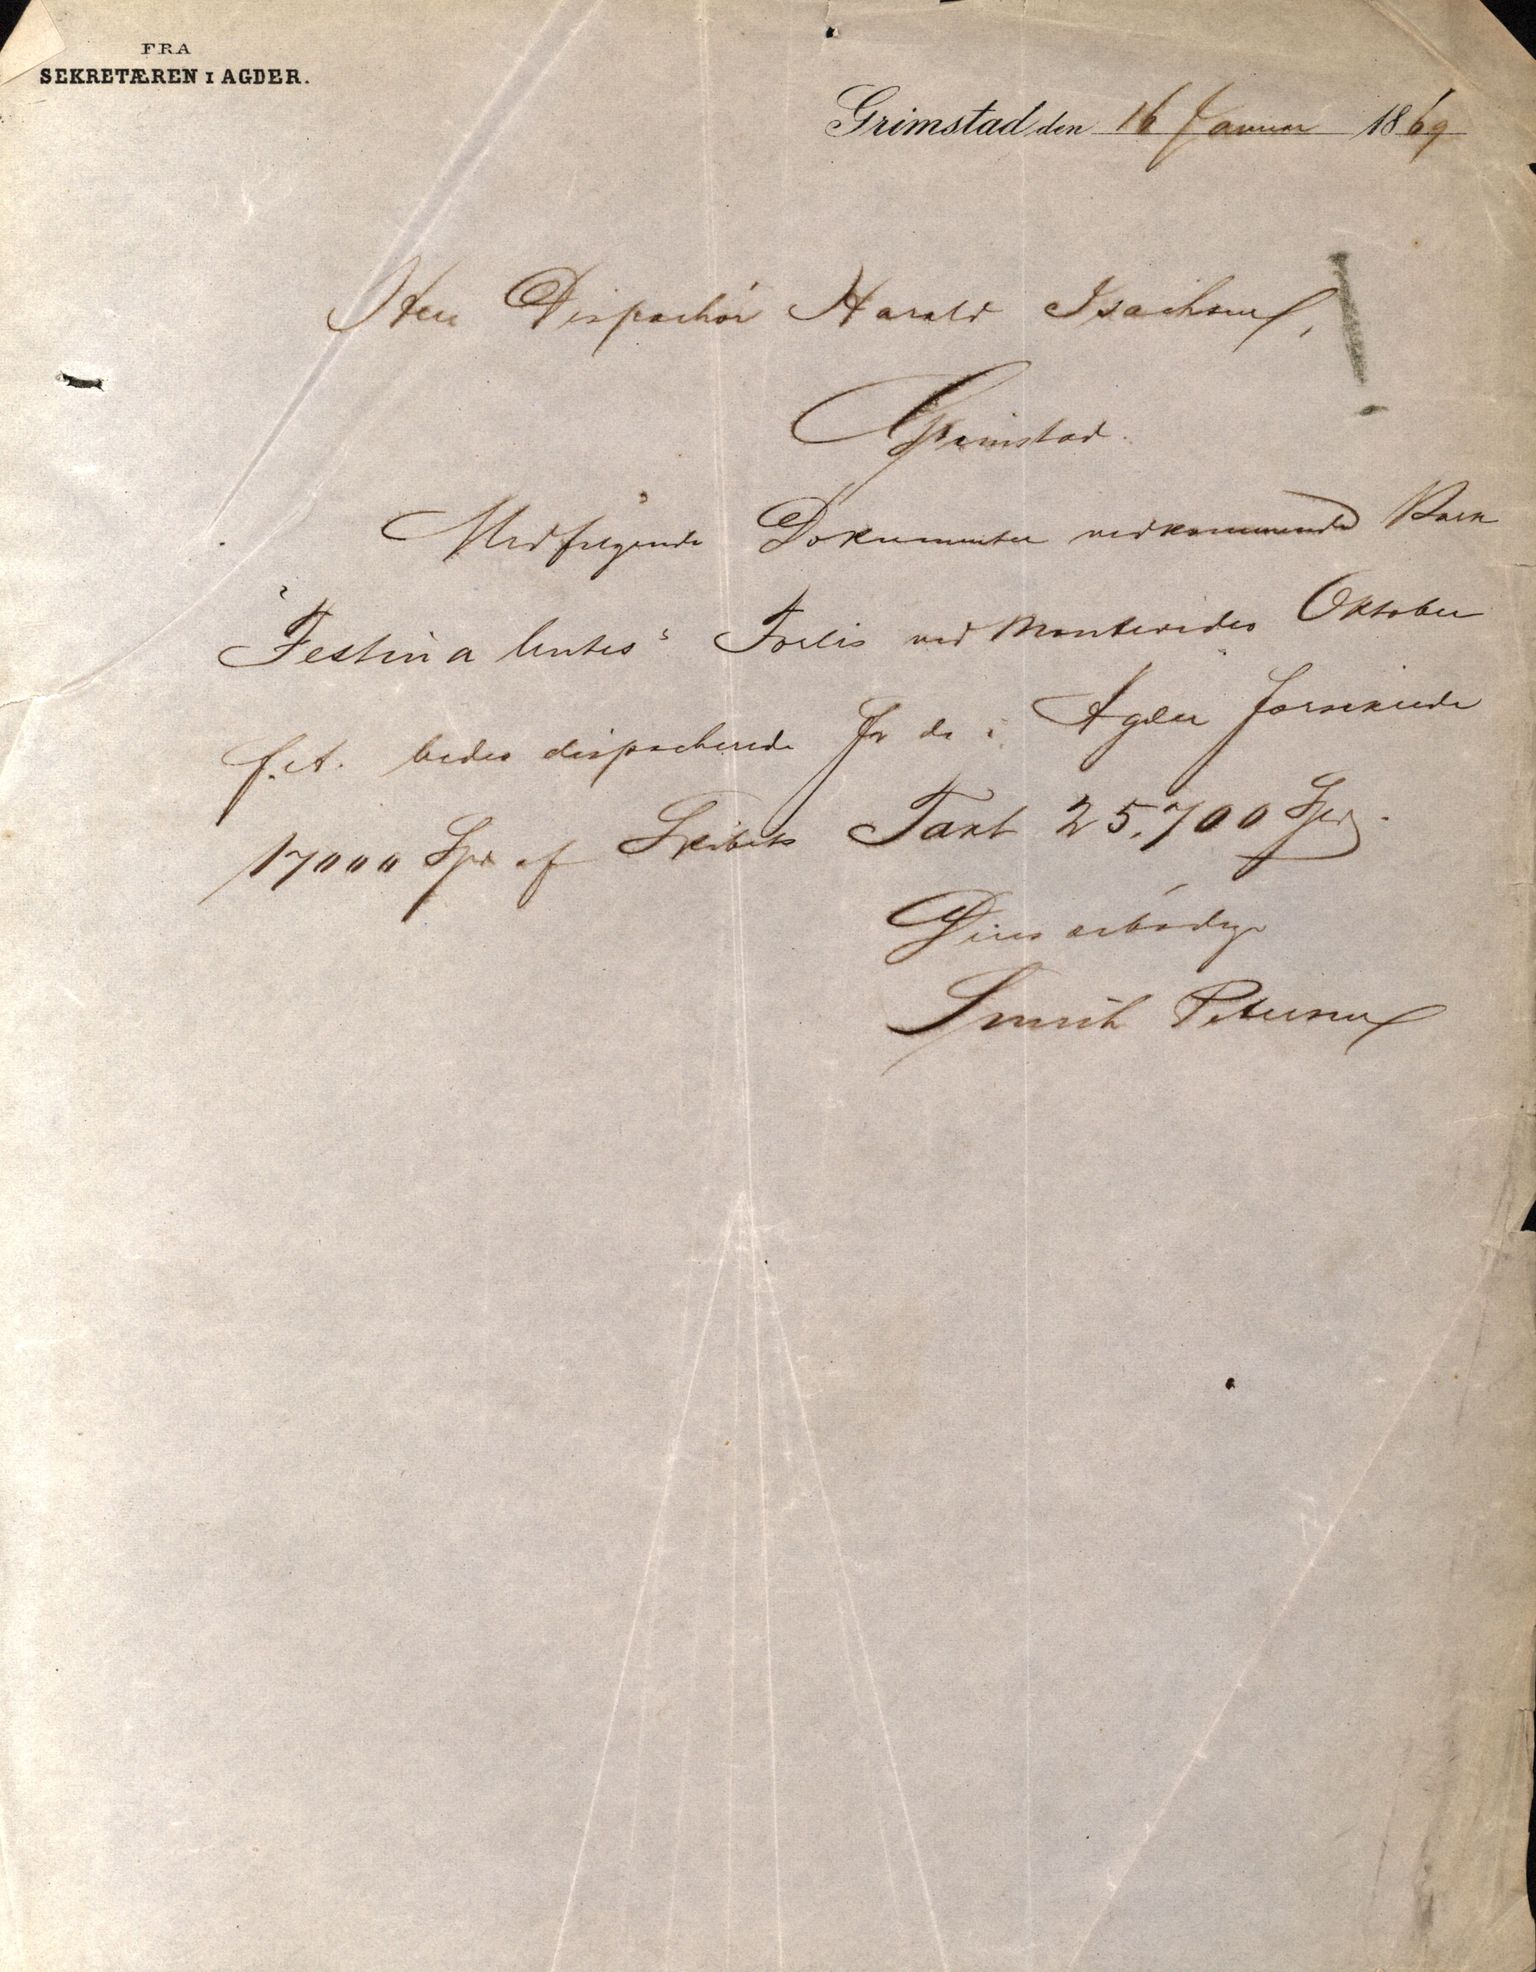 FRA
SEKRETÆREN I AGDER.
Grimstad den 16 Januar 1869
Herr Dispachør Harald Isachsen,
Grimstad.
Medfølgende Dokumenter vedkommende Bark
"Festina lentes" Forlis ved Montevideo Oktober
f. A. bedes dispacherede for de i Agder forsikrede
17000 Spd af Skibets Taxt 25,700 Spd.
Deres ærbødige
Smith Petersen